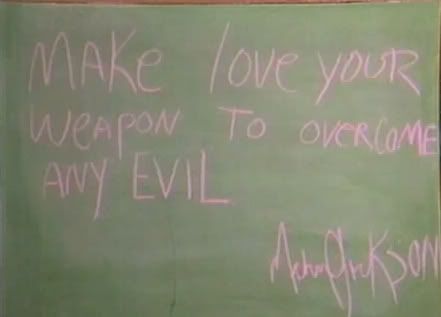 MAKe love your
WEAPON TO OVERCOME
ANY EVIL
JacKSON